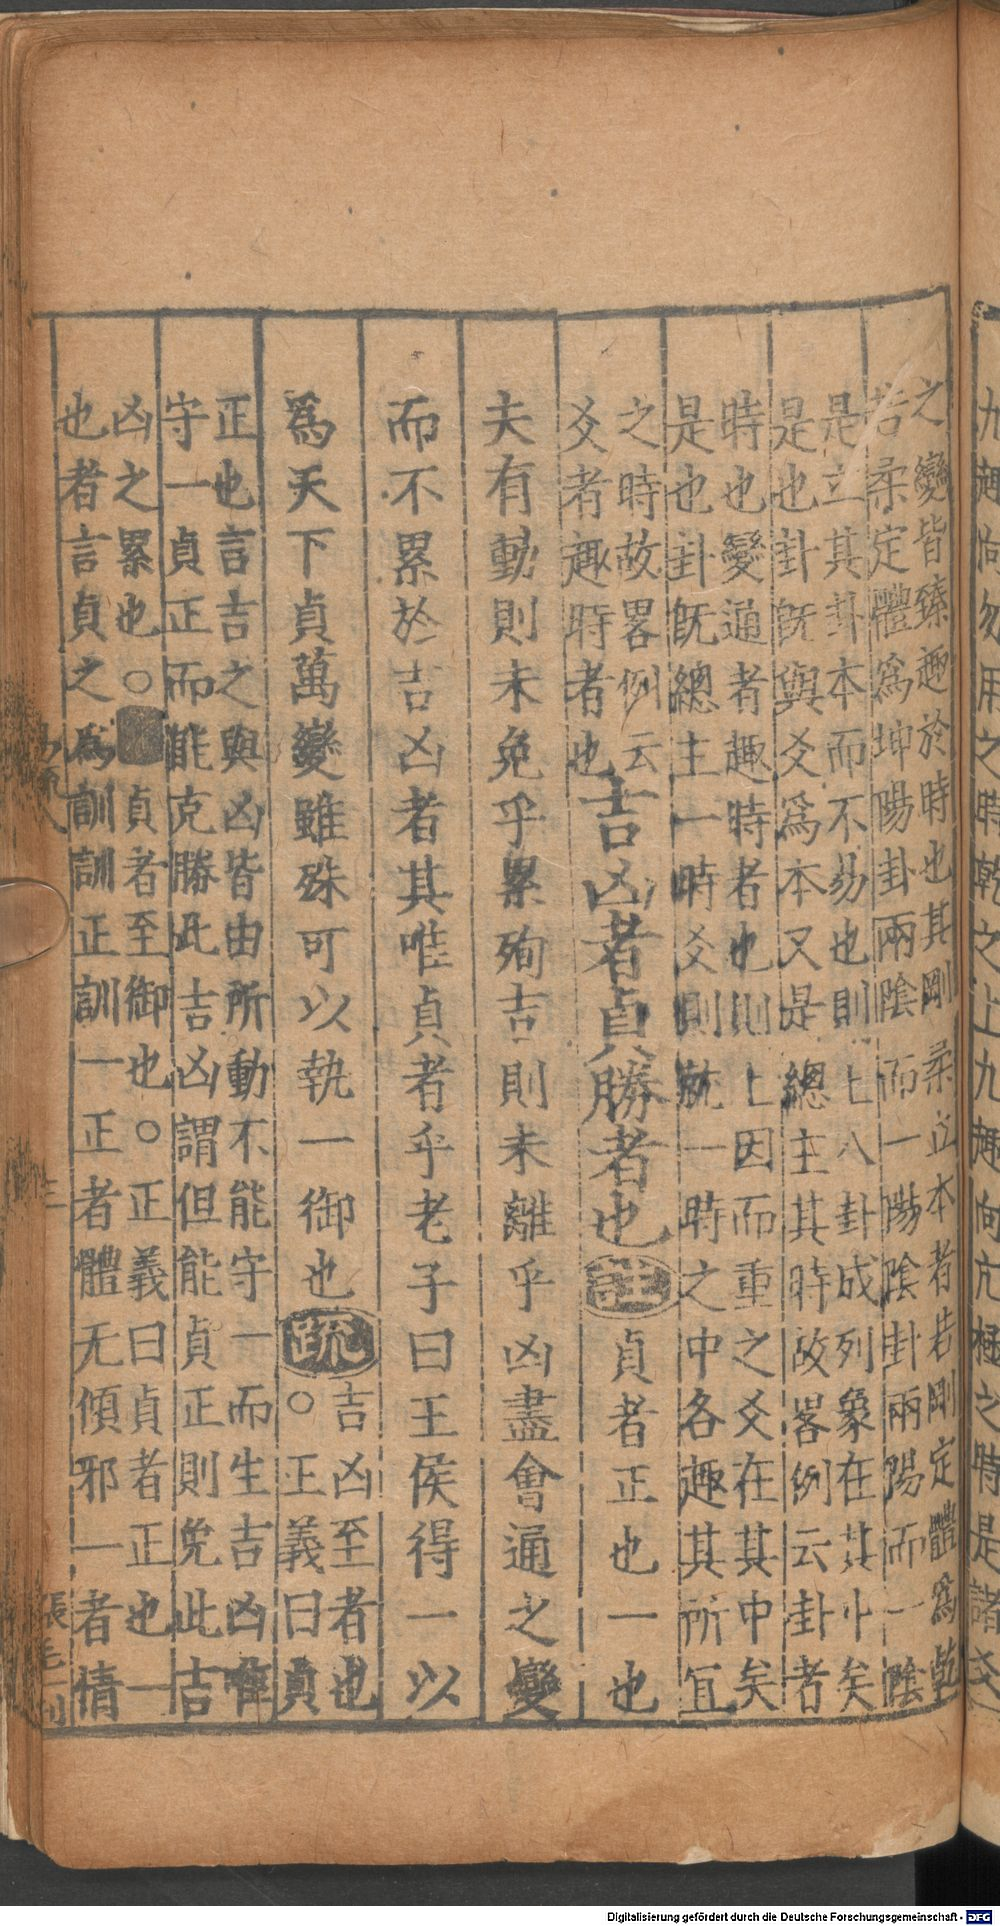 九趣向勿用之時乾之上九趣向亢極之時是諸爻
之變皆臻趣於時也其剛柔立本者若剛定體為乾
若柔定體為坤陽卦兩陰而一陽陰卦兩陽而一陰
是立其卦本而不易也則上八卦成列象在其中矣
是也卦旣與爻為本又是總主其時故畧例云卦者
時也變通者趣時者也則上因而重之爻在其中矣
是也卦旣總主一時爻則就一時之中各趣其所宜
之時故畧例云
爻者趣時者也
吉凶者貞勝者也註貞者正也一也
夫有動則未免乎累殉吉則未離乎凶盡會通之變
而不累於吉凶者其唯貞者乎老子曰王侯得一以
為天下貞萬變雖殊可以執一御也疏
吉凶至者也
○正義曰貞
正也言吉之與凶皆由所動不能守一而生吉凶唯
守一貞正而能克勝此吉凶謂但能貞正則免此吉
凶之累也○貞者至御也○正義曰貞者正也一
也者言貞之為訓訓正訓一正者體无傾邪一者情
張毛一刊
Digitalisierung gefördert durch die Deutsche Forschungsgemeinschaft - DFG